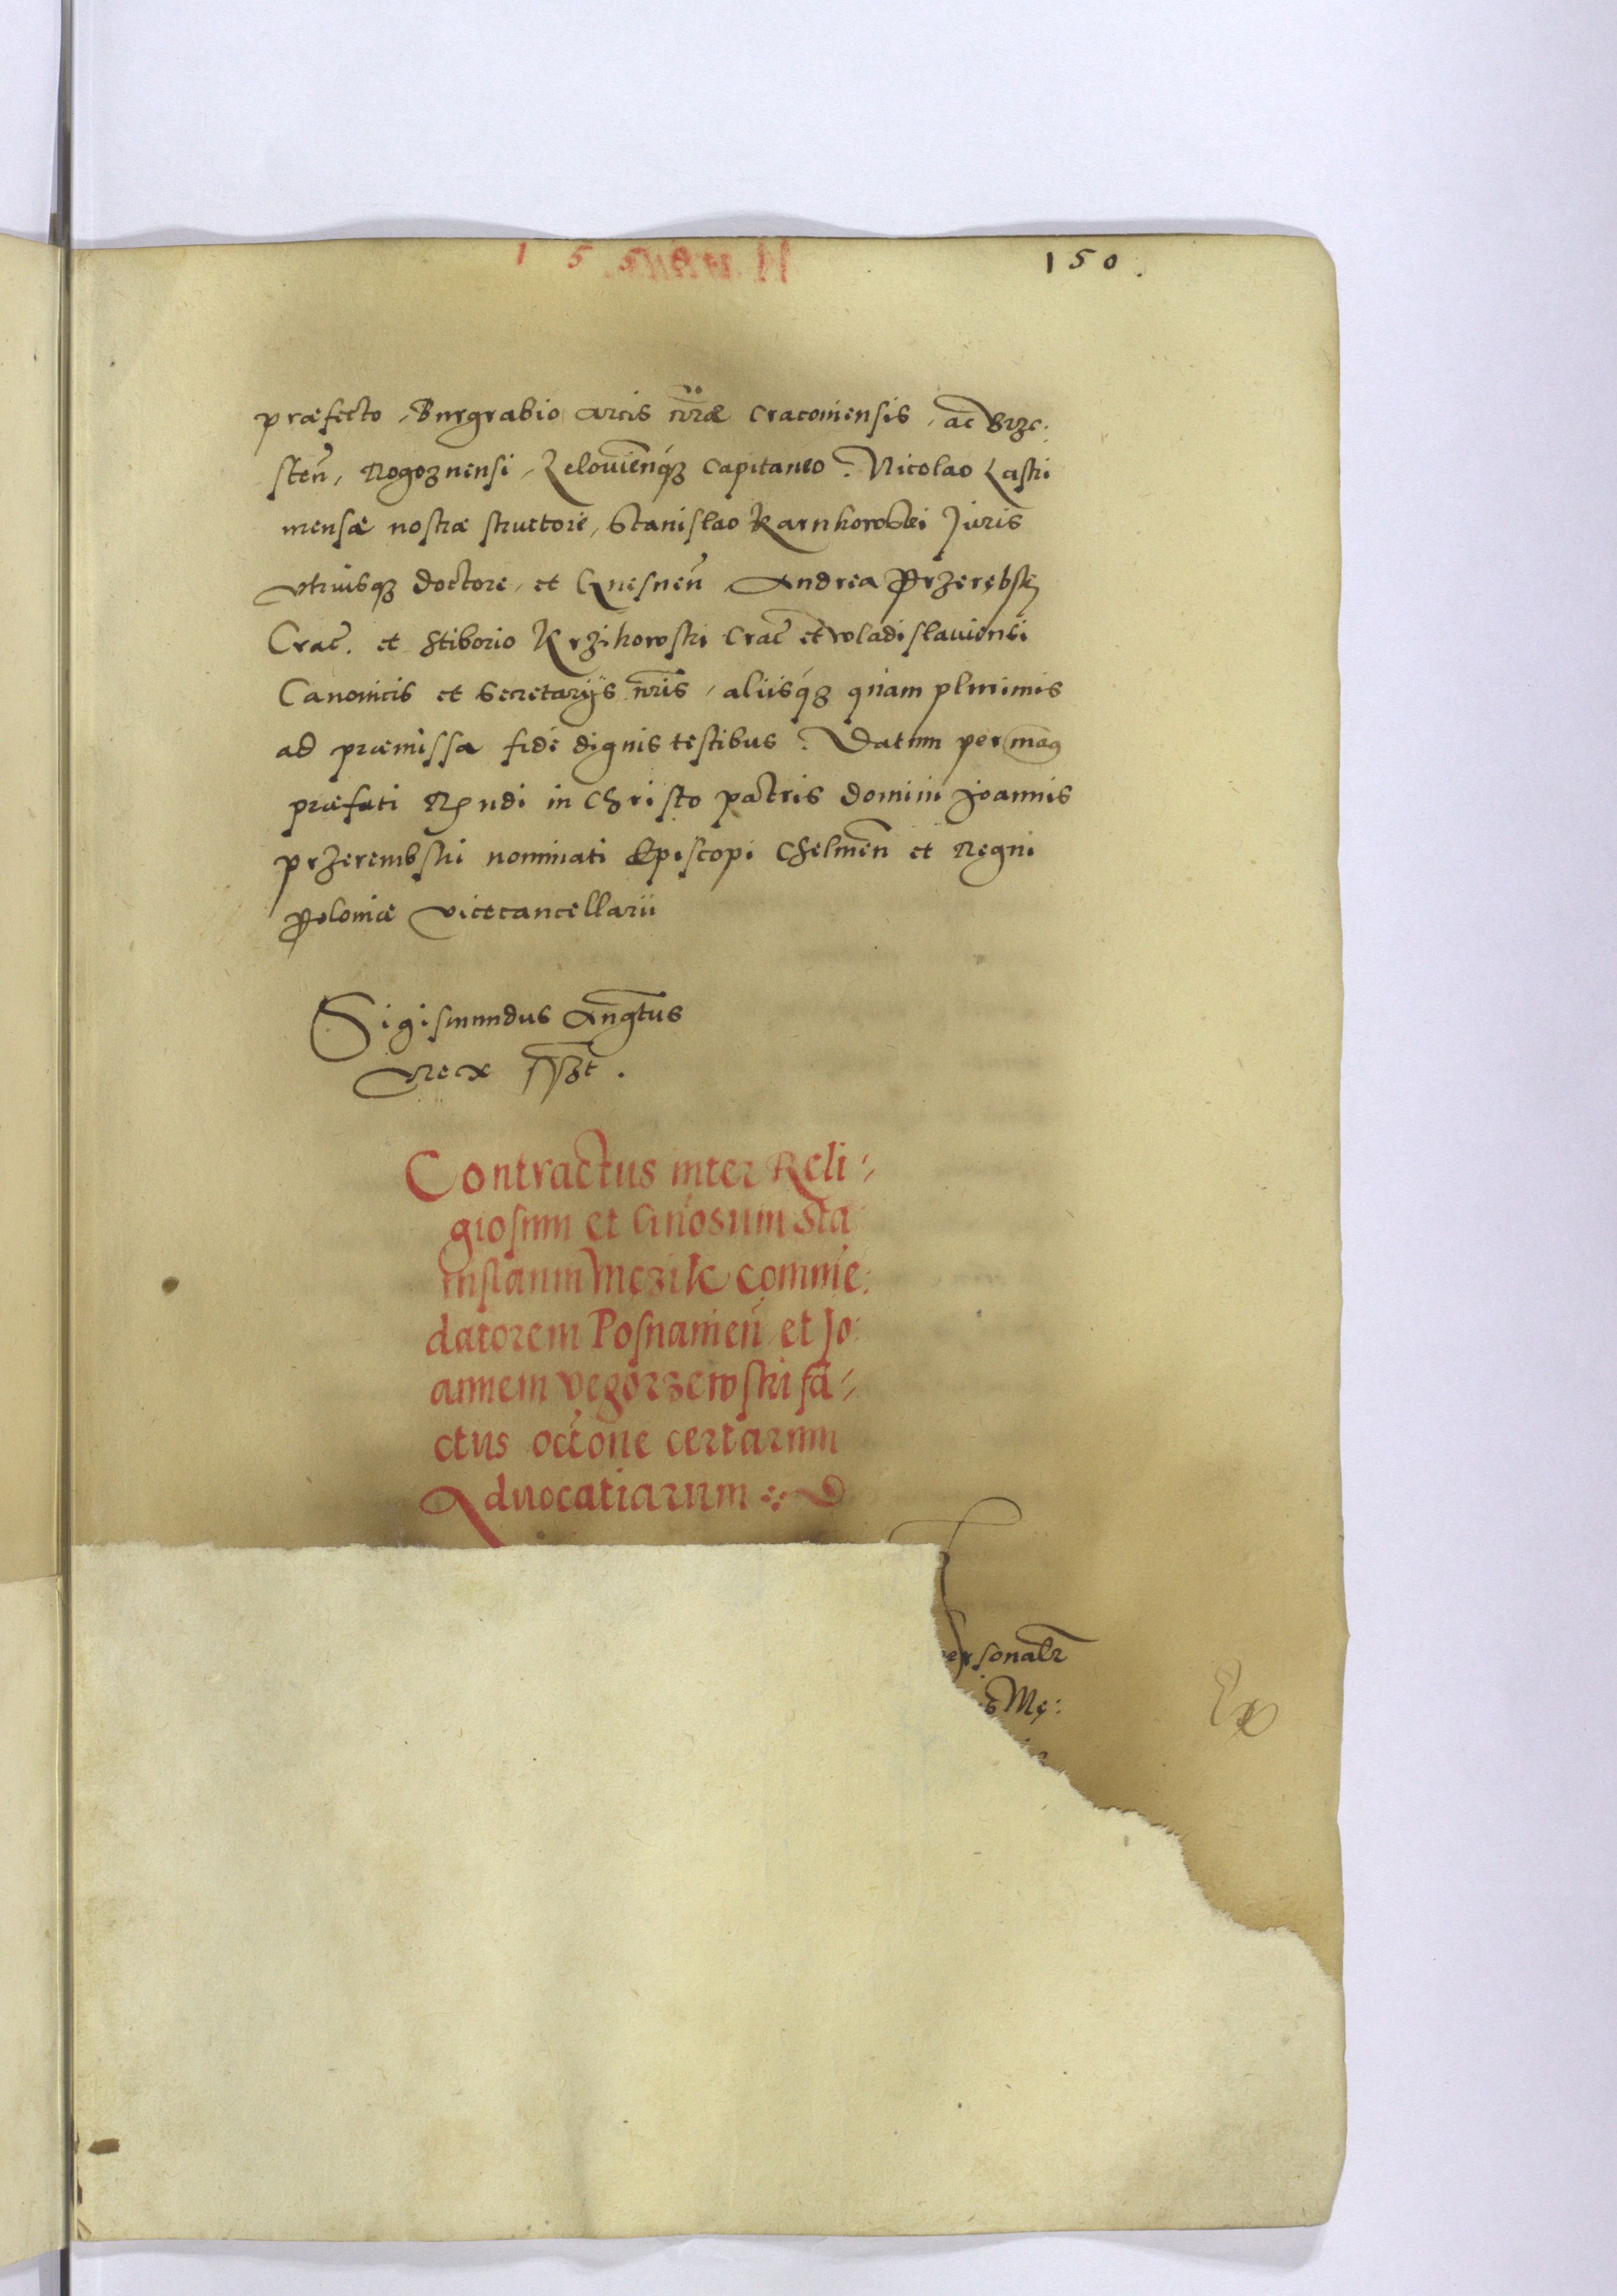 1 5 5
150.
præfecto, Burgrabio arcis nr̃æ Cracoviensis, ac Brze:
steñ, Rogoznensi, Zelovieñq́ꝫ Capitaneo. Nicolao Laski
mensæ nostræ structore, Stanislao Karnkowski Juris
vtriusqꝫ doctore, et Gnesneñ Andrea Przerębski
Crac̃. et Stiborio Krzikowski Crac̃ et Wladislauiensi
Canonicis et Secretarijs nr̃is, aliisq́ꝫ quam plurimis
ad præmissa fide dignis testibus. Datum per man9
præfati Rñdi in Christo patris domini Joannis
Przerembski nominati Episcopi Chelmeñ et Regni
Poloniæ Vicecancellarii
Sigismundus Aug̃tus
Rex sszt.
Contractus inter Reli:
giosum et Gñosum Sta
nislaum Męzik Comme:
datorem Posnanieñ et Jo:
annem Vegorzewski fa:
ctus oc̃cone certarum
Aduocatiarum
ersonalr̃
Mę: